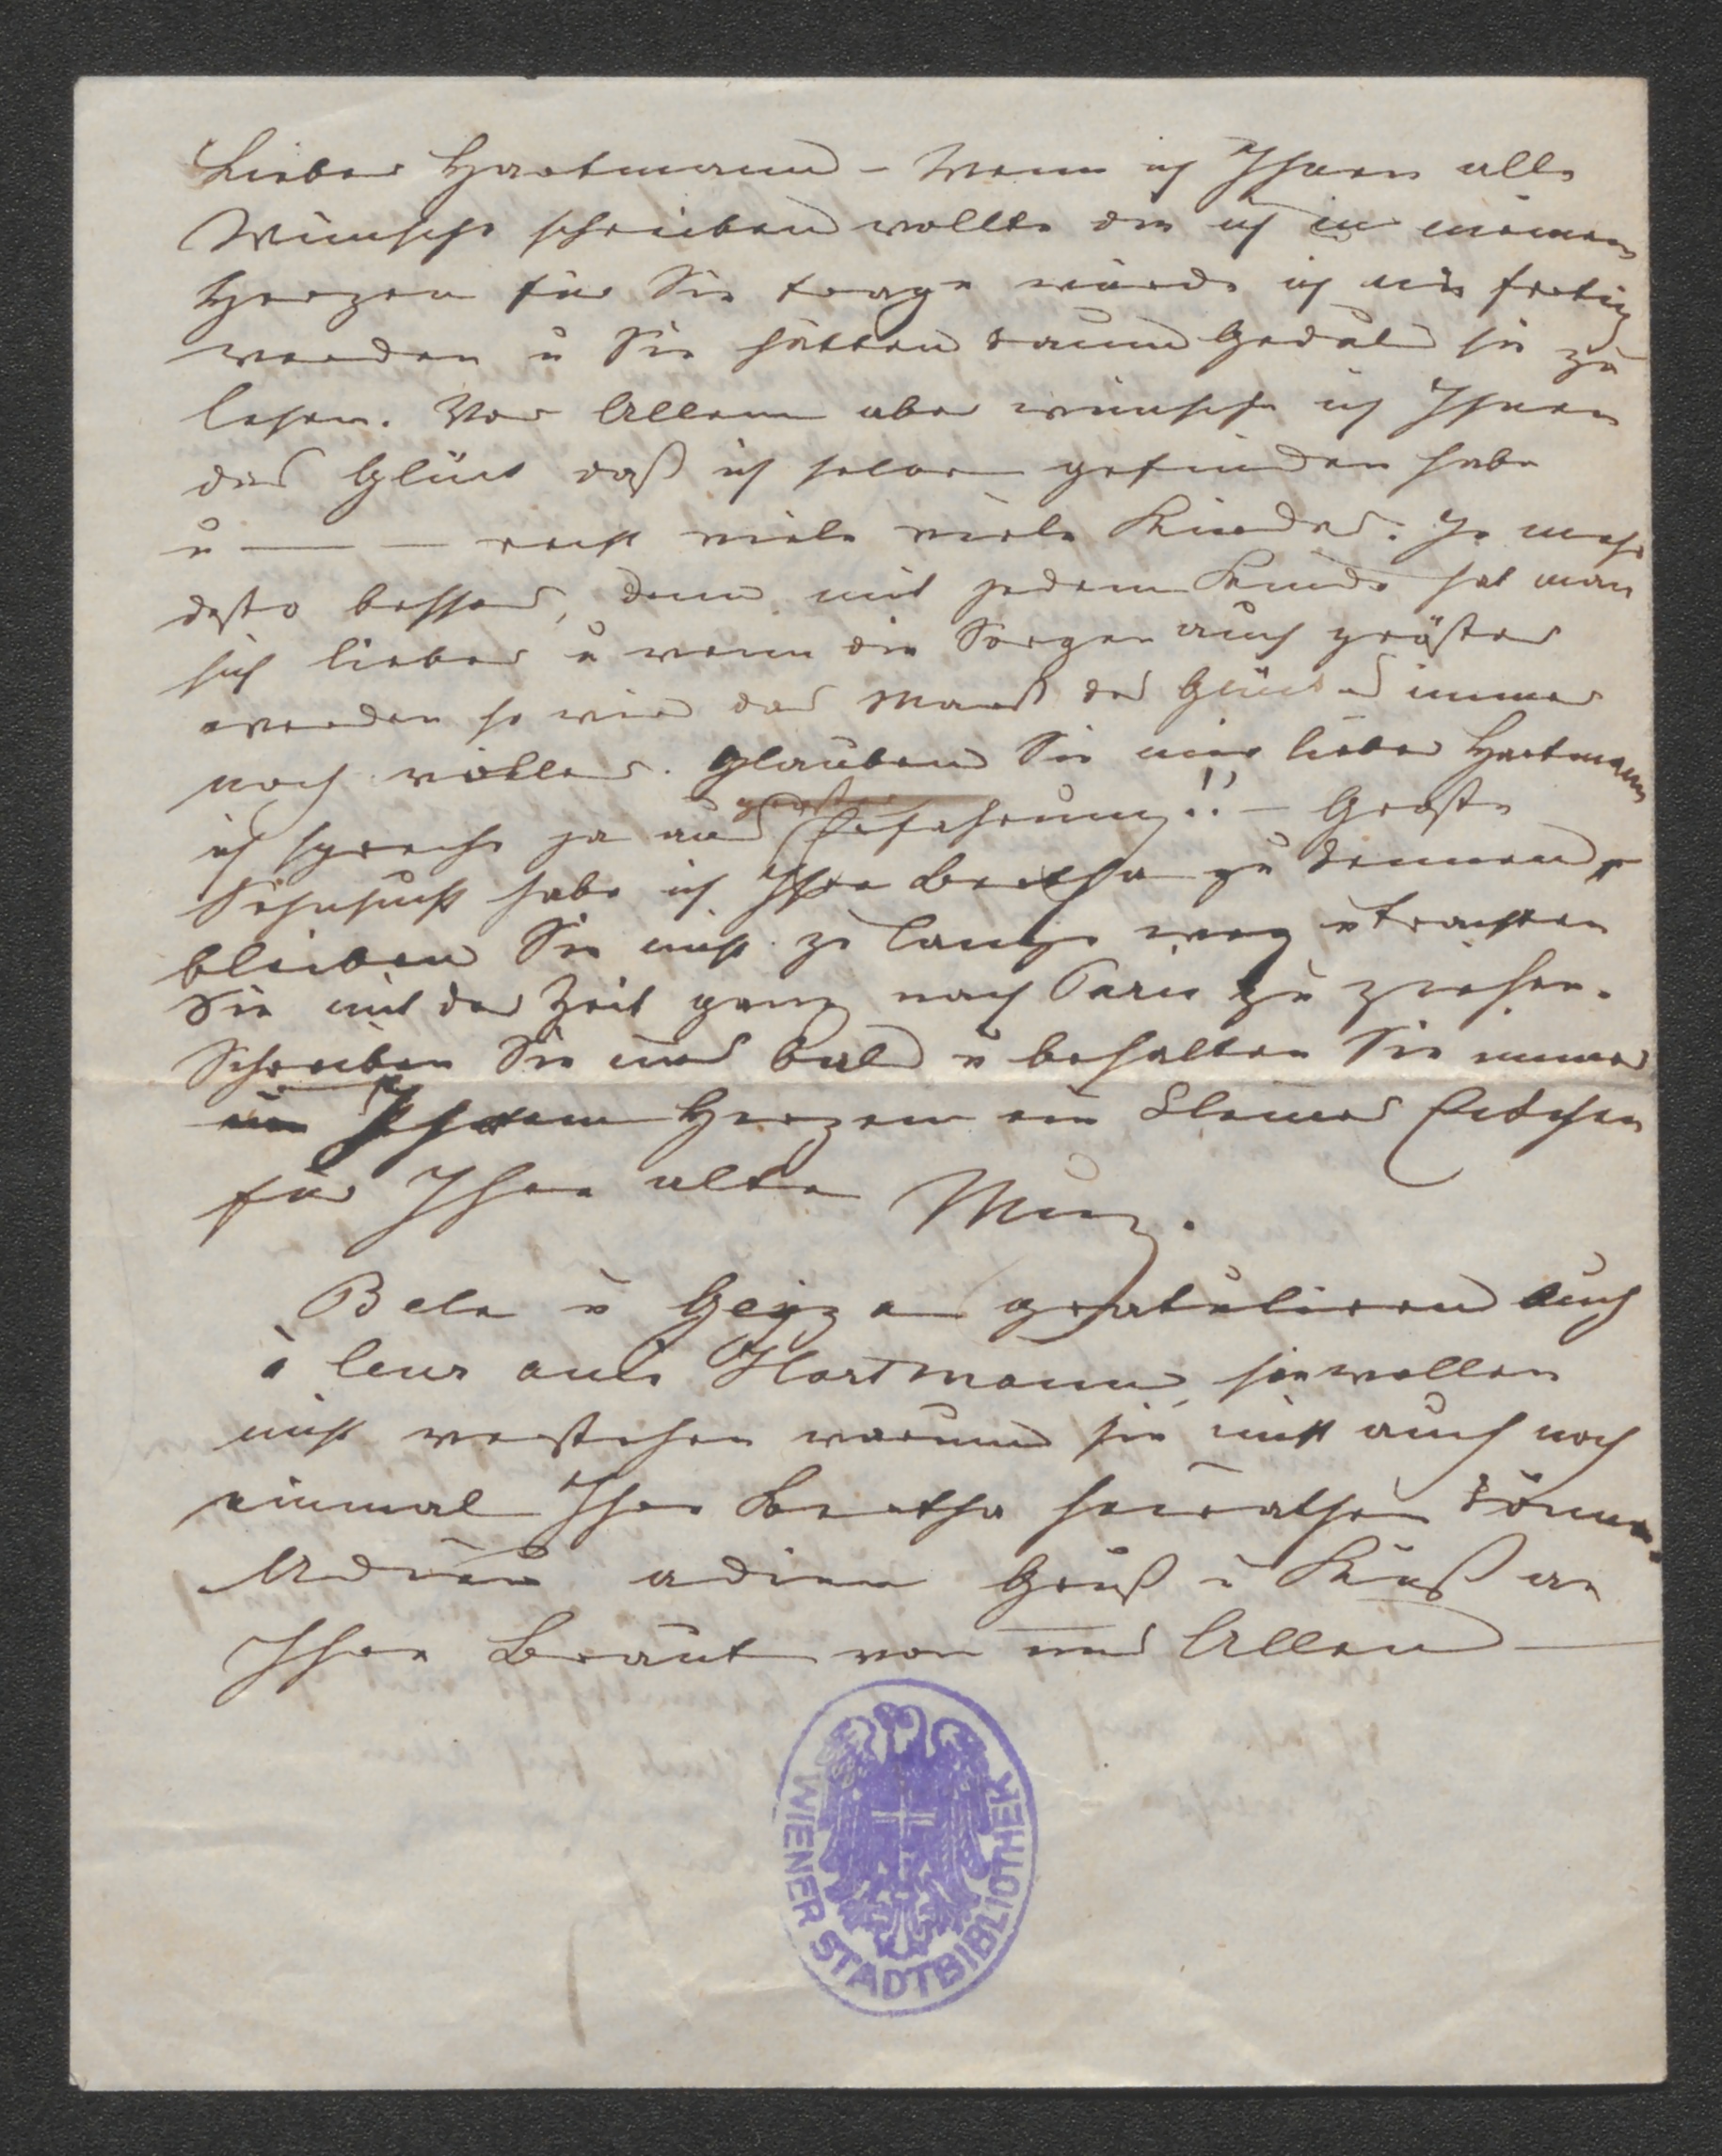 Lieber Hartmann – Wenn ich Ihnen alle
Wünsche schreiben wollte die ich in meinem
Herzen für Sie trage würde ich nie fertig
werden u Sie hätten kaum Geduld sie zu
lesen. Vor Allem aber wünsche ich Ihnen
das Glück daß ich selber gefunden habe
u — — recht viele viele Kinder. Je mehr
desto besser, denn mit jedem Kinde hat man
sich lieber u wenn die Sorgen auch größer
werden so wird das Maaß des Glückes immer
noch voller. Glauben Sie mir lieber Hartmann
ich spreche ja aus großer Erfahrung!! – Große
Sehnsucht habe ich Ihre Bertha zu kennen,
bleiben Sie nicht zu lange weg u trachten
Sie mit der Zeit ganz nach Paris zu ziehen.
Schreiben Sie uns bald u behalten Sie immer
in Ihrem Herzen ein kleines Eckchen
für Ihre alte Minz.
Bela u Geyza gratuliren auch
à leur oncle Hartmann sie wollen
nicht verstehen warum sie nicht auch noch
einmal Ihre Bertha heirathen können.
Adieu adieu Gruß u Kuß an
Ihre Braut von uns Allen —
WIENER STADTBIBLIOTHEK